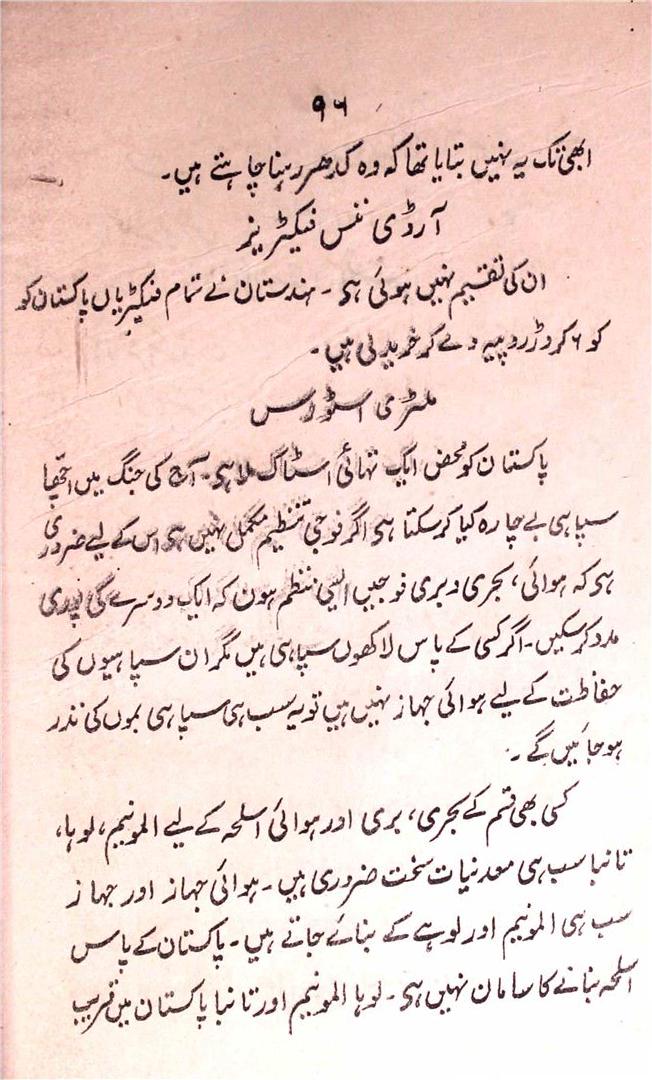 ۹۶
ابھی تک یہ نہیں بتایا تھا کہ وہ کدھر رہنا چاہتے ہیں۔
آرڈی ننس فیکٹریز
ان کی تقسیم نہیں ہوئی ہی ۔ ہندستان نے تمام فیکٹریاں پاکستان کو
کو ۶ کروڑ روپیہ دے کر خرید لی ہیں ۔
ملٹری اسٹورس
پاکستان کو محض ایک تہائی اسٹاک ملا ہی ۔ آج کی جنگ میں اچھا
سپاہی بے چارہ کیا کرسکتا ہی اگر فوجی تنظیم مکمل نہیں ہی اس کے لیے ضروری
ہی کہ ہوائی، بحری و بری فوجیں ایسی منظم ہوں کہ ایک دوسرے کی پوری
مدد کرسکیں۔ اگر کسی کے پاس لاکھوں سپاہی ہیں مگر ان سپاہیوں کی
حفاظت کے لیے ہوائی جہاز نہیں ہیں تو یہ سب ہی سپاہی بموں کی نذر
ہوجائیں گے ۔
کسی بھی قسم کے بحری، بری اور ہوائی اسلحہ کے لیے المونیم، لوہا،
تانبا سب ہی معدنیات سخت ضروری ہیں ۔ ہوائی جہاز اور جہاز
سب ہی المونیم اور لوہے کے بنائے جاتے ہیں ۔ پاکستان کے پاس
اسلحہ بنانے کا سامان نہیں ہی ۔ لوہا المونیم اور تانبا پاکستان میں قریب